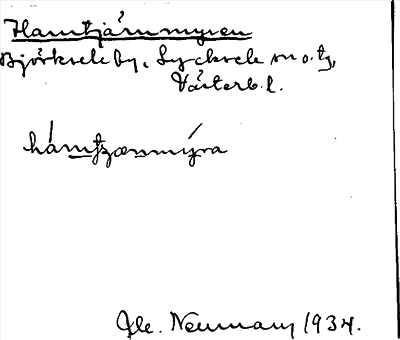 Hamtjärnmyren
Björksele by, Lycksele sn o. tg,
Västerb. l.
hámtjænmýra
Gle. Neumany 1934.